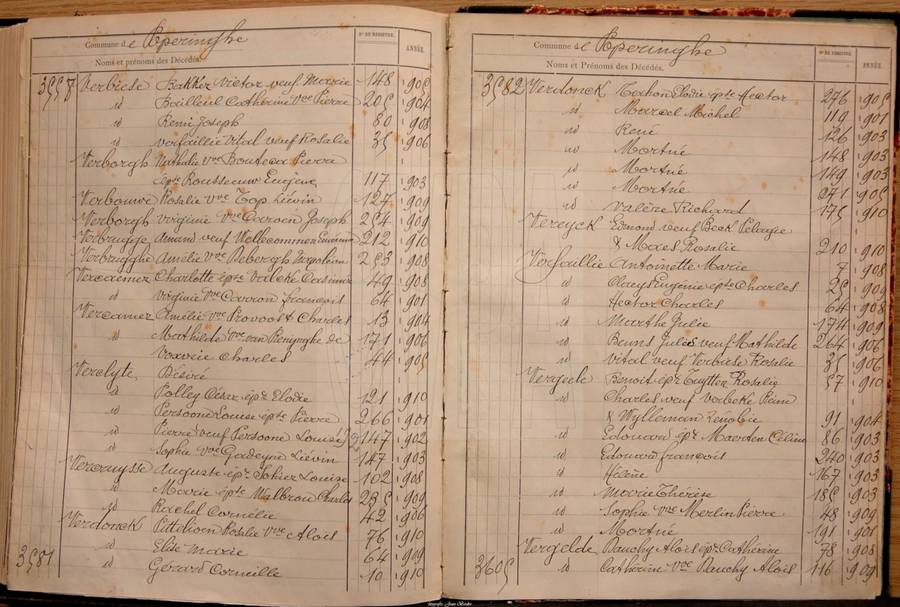 Commune de Poperinghe
Noms et prénoms des Décédés.
N° DU REGISTRE.
ANNÉE.
3557 Verbiese Bakker Victor veuf Marie 148 905
id Bailleul Catherine Vve Pierre 205 904
id Remi Joseph 80 908
id Verfaillie Vital veuf Rosalie 35 906
Verborgh Nathalie Vve Bouteca Pierre
épse Rousseeuw Eugène 117 903
Verbouwe Rosalie Vve Top Liévin 127 909
Verborgh Virginie Vve Caroen Joseph 254 909
Verbrugge Amand veuf 212 910
Verbrugghe Amélie Vve Debergh Napoléon 253 908
Vercaemer Charlotte épse Valcke Casimir 49 908
id Virginie Vve Carron François 64 901
Vercamer Amélie Vve Provoost Charles 13 904
id Mathilde Vve van Renynghe de 171 906
Voxvrie Charles 44 905
Verclyte Désiré
id Polley César épx Elodie 121 910
id Persoone Louise épse Pierre 266 901
id Pierre veuf Persoone Louise 147 902
id Sophie Vve Gradeyne Liévin 147 903
Vercruysse Auguste épx Sohier Louise 102 908
id Marie épse Malbrou Charles 235 909
id Rachel Cornélie 42 906
Verdonck Pittelioen Rosalie Vve Alois 76 910
id Elise Marie 64 909
3581 id Gérard Corneille 10 910
Commune de Poperinghe
Noms et Prénoms des Décédés.
N° DU REGISTRE.
ANNÉE.
3582 Verdonck Elodie épse Hector 276 905
id Marcel Michel 119 901
id René 126 903
id Mortné 148 903
id Mortné 149 903
id Mortné 271 905
id Valère Richard 175 910
Vereyck Edmond veuf Beck Pélagie
& Maes Rosalie 210 910
Verfaillie Antoinette Marie 7 908
id Claeys Eugénie épse Charles 25 909
id Hector Charles 64 908
id Marthe Julie 174 909
id Beuns Jules veuf Mathilde 264 906
id Vital veuf Verbiese Rosalie 35 906
Vergeele Benoit épx Tuytten Rosalie 57 910
id Charles veuf Verbeke
& Wylleman Zénobie 91 904
id Edouard épx Maerten Céline 86 903
id Edouard François 240 903
id Hélène 167 903
id Marie Thérèse 185 903
id Sophie Vve Merlin Pierre 48 909
id Mortné 191 901
Vergelde Pauchy Alois épx Catherine 78 908
3605 id Catherine Vve Pauchy Alois 116 909